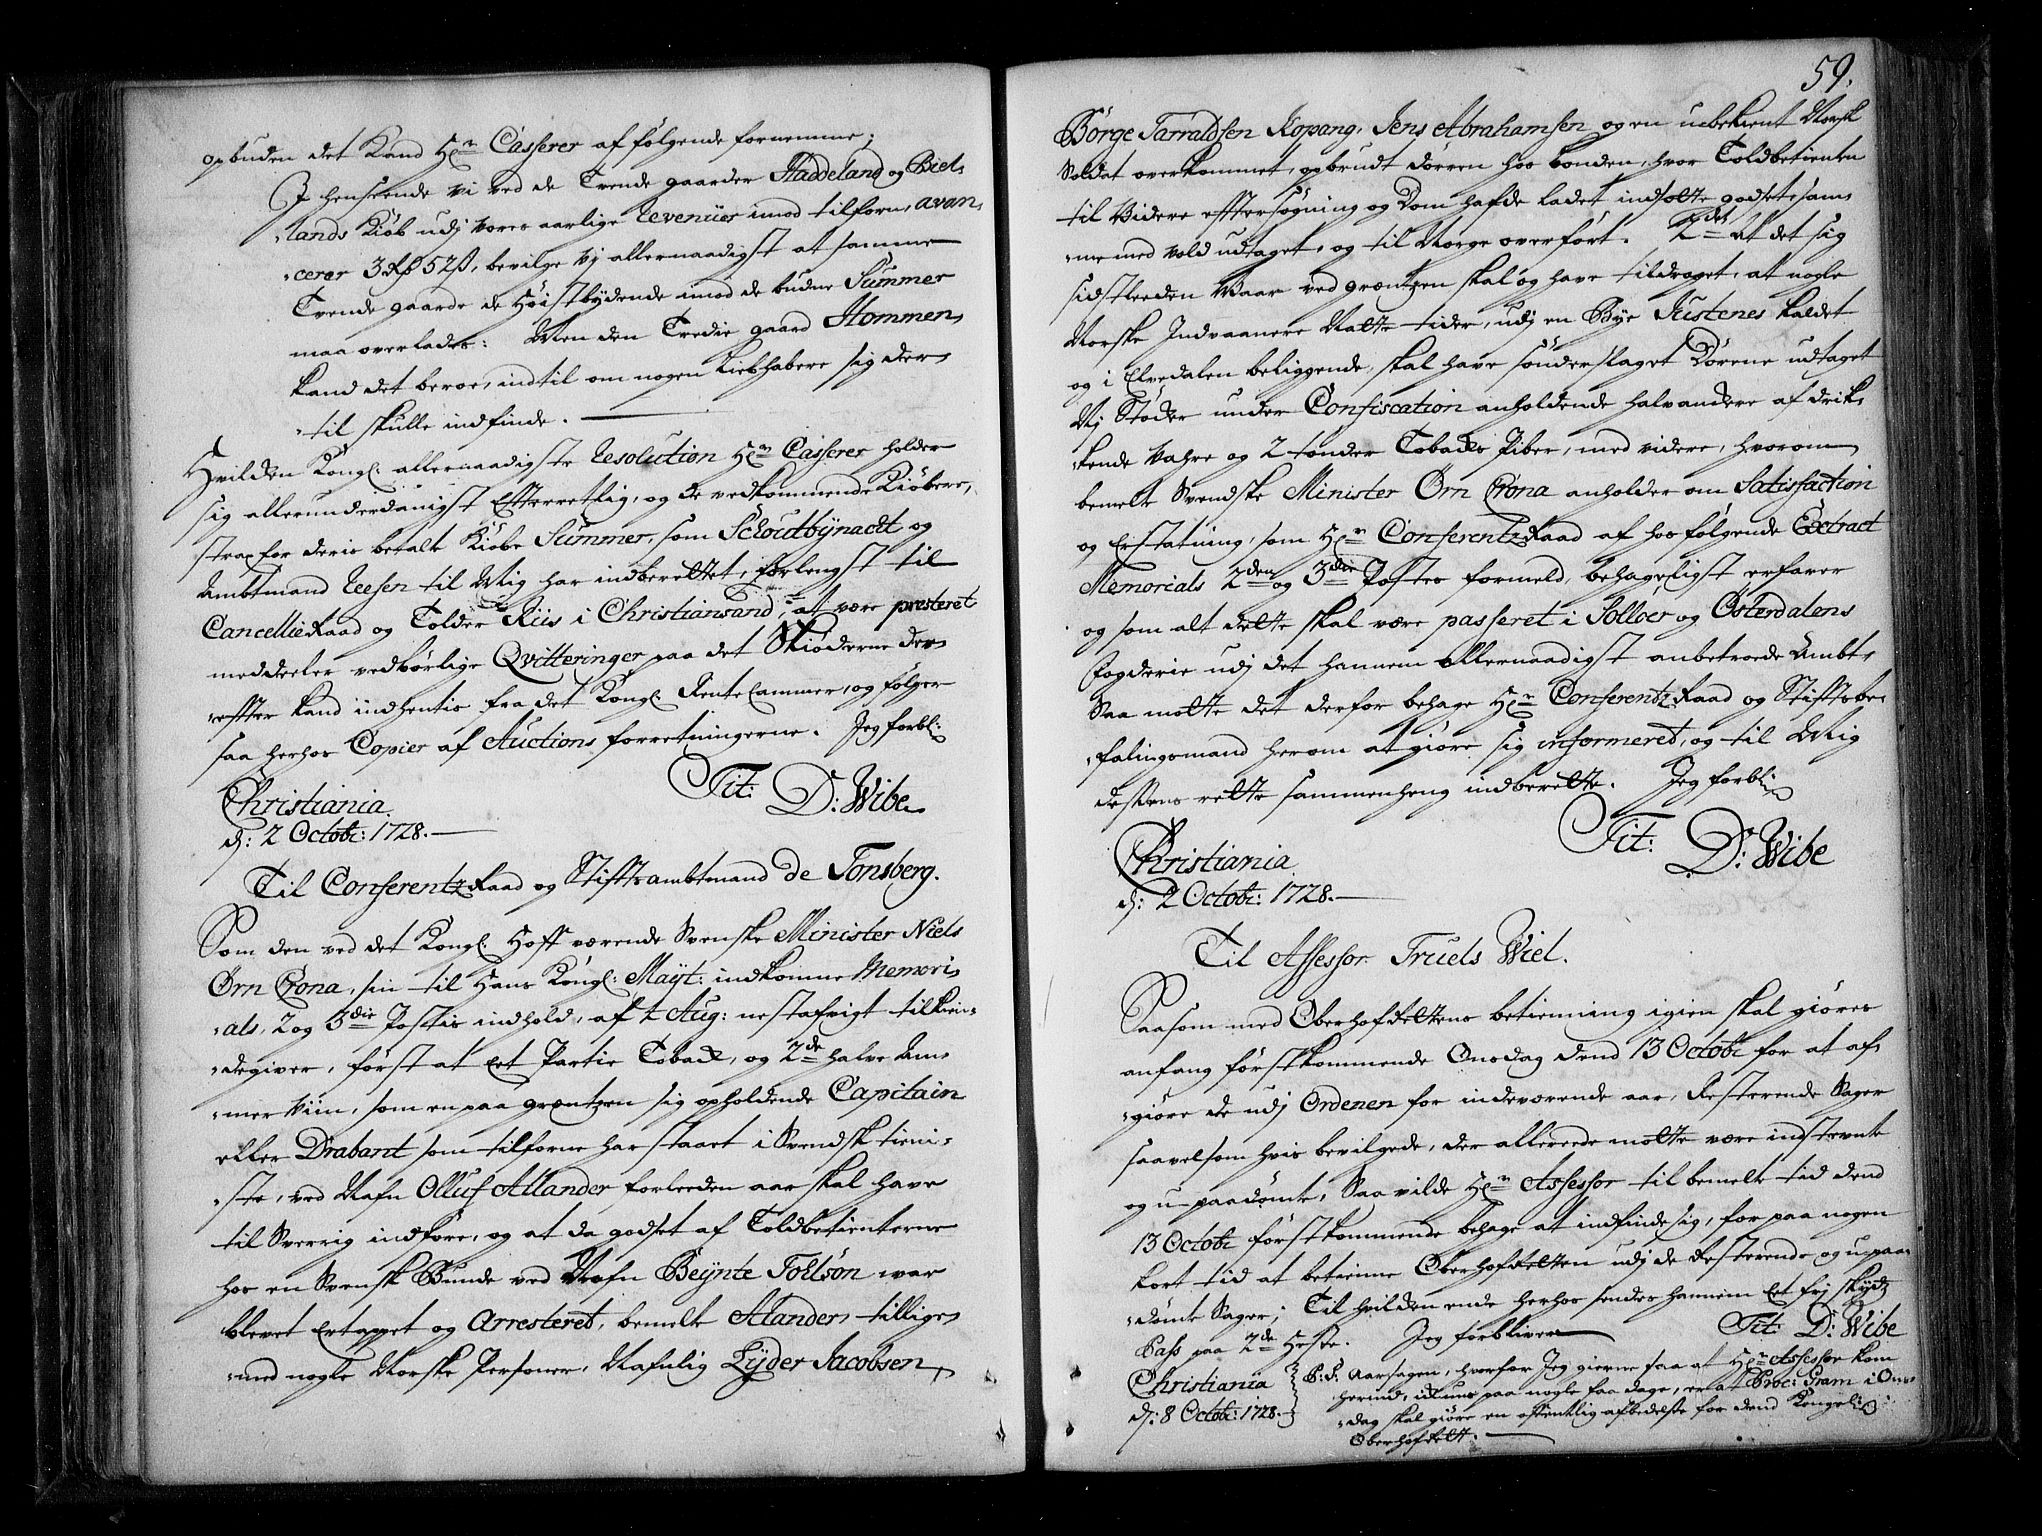 opbuden det Kand Hr. Casserer af følgende fornemme;
I henseende vi ved de Trende gaarder Haddeland og Biel-
lands Kiøb udj vores aarlige Revenüer imod tilforn, avan-
cerer 3 Rd 52 ß, bevilge Vj allernaadigst at samme
Tvende gaarde de Høistbydende imod de budne Summer
maa overlades: Men den Tredie gaard Hommen,
kand det beroe, indtil om nogen Liebhabere sig der-
til skulle indfinde.
Hvilden Kongl: allernaadigste Resolution Hr. Casserer holder
sig allerunderdanigst Efterretlig, og de vedkommende Kiøbere,
strax for deris betalte Kiøbe Summer, som Schoutbÿnacht og
Ambtmand Reesen til Mig har indberettet, forlengst til
CancellieRaad og Tolder Riis i Christiansand, at være presteret
meddeeler vedbørlige Qvitteringer paa det Skiøderne der-
efter kand indhentis fra det Kongl: RenteCammer, og følger
saa herhos Copier af Auctions forretningerne. Jeg forbl:
Tit: D: Wibe.
Christiania
d: 2 Octobr: 1728.
Til ConferentzRaad og Stiftsambtmand de Tonsberg.
Som den ved det Kongl: Hoff værende Svenske Minister Niels
Örn Crona, sin til Hans Kongl: Mayt: indkomne Memori-
als, 2 og 3die Postis indhold, af Aug: nestafvigt tilkien-
degiver, først at Eet Partie Tobach, og 2de halve Am-
mer Viin, som en paa grentzen sig opholdende Capitain
eller Drabant som tilforne har staaet i Svensk tieni-
ste, ved Nafn Olluf Allander forleeden aar skal have
til Sverrig indføre, og at da godset af Toldbetienterne
hos en Svensk Bunde ved Nafn Beÿnte Tolsön war
blevet Ertappet og Arresteret, bemelte Alander, tillige-
med nogle Norske Personer, Nafnlig Lÿder Jacobsen,
59.
Børge Tarraldsen Kopang, Jens Abrahamsen og en ubekient Norsk
Soldat overkommet, opbrudt dørren hos bonden, hvor Toldbetienten
til Videre eftersøgning og Dom hafde ladet indsette godset, sam-
me med vold udtaget, og til Norge overført. 2det At det sig
sidstleeden Vaar ved grentzen skal og have tildraget, at nogle
Norske Indvaanere Natte tider, udj en Bye Sustenes kaldet
og i Elvedalen beliggende, skal have sønderslaget Dørene udtaget
Nj Støder under Confiscation anholdende halvandere af drik-
kende Vahre og 2 tønder Tobachs Piber, med videre, hvorom
bemelte Svendske Minister Örn Crona anholder om Satisfaction
og Erstatning, som Hr. ConferentzRaad af hosfølgende Extract
Memorials 2den og 3die Postes formeld, behageligst erfarer
og som alt dette skal være passeret i Solloer og Österdalens
Fogderie udj det hannem allernaadigst anbetroede Ambt,
Saa motte det derfor behage Hr. ConferentzRaad og Stiftsbe-
falingsmand herom at giøre sig informeret, og til Mig
dessens rette sammenheng indberette. Jeg forbli
Tit: D: Wibe
Christiania
d: 2 Octobr: 1728.
Til Assessor Truels Wiel.
Saasom med Oberhofrettens betienning igien skal giøres
anfang førstkommende Onsdag dend 13 Octobr for at af-
giøre de udj Ordenen for indeværende aar, Resterende Sager
saavelsom hvis bevilgede, der allereede motte være indstevnte
og u-paadømte, Saa vilde Hr. Assessor til bemelte tid dend
13 Octobr førstkommende behage at indfinde sig, for paa nogen
kort tid at betienne Oberhofretten udj de Resterende og upaa-
dømte Sager; Til hvilden ende herhos sendes hannem Eet frj skÿdz
Pass paa 2de Heste. Jeg forbliver
Tit: D: Wibe
Christiania
d: 8 Octobr: 1728.
P: S: Aarsagen, hvorfor Jeg gierne saa at Hr. Assessor kom
herind, paa nogle faa dage, er at Proc: Gram i Ons-
dag skal giøre en offentlig afbedelse for dend Kongel:
Oberhofrett.